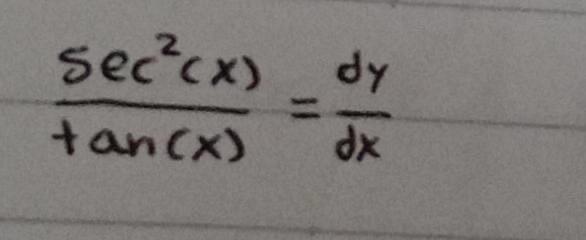 sec²(x)/tan(x) = dy/dx